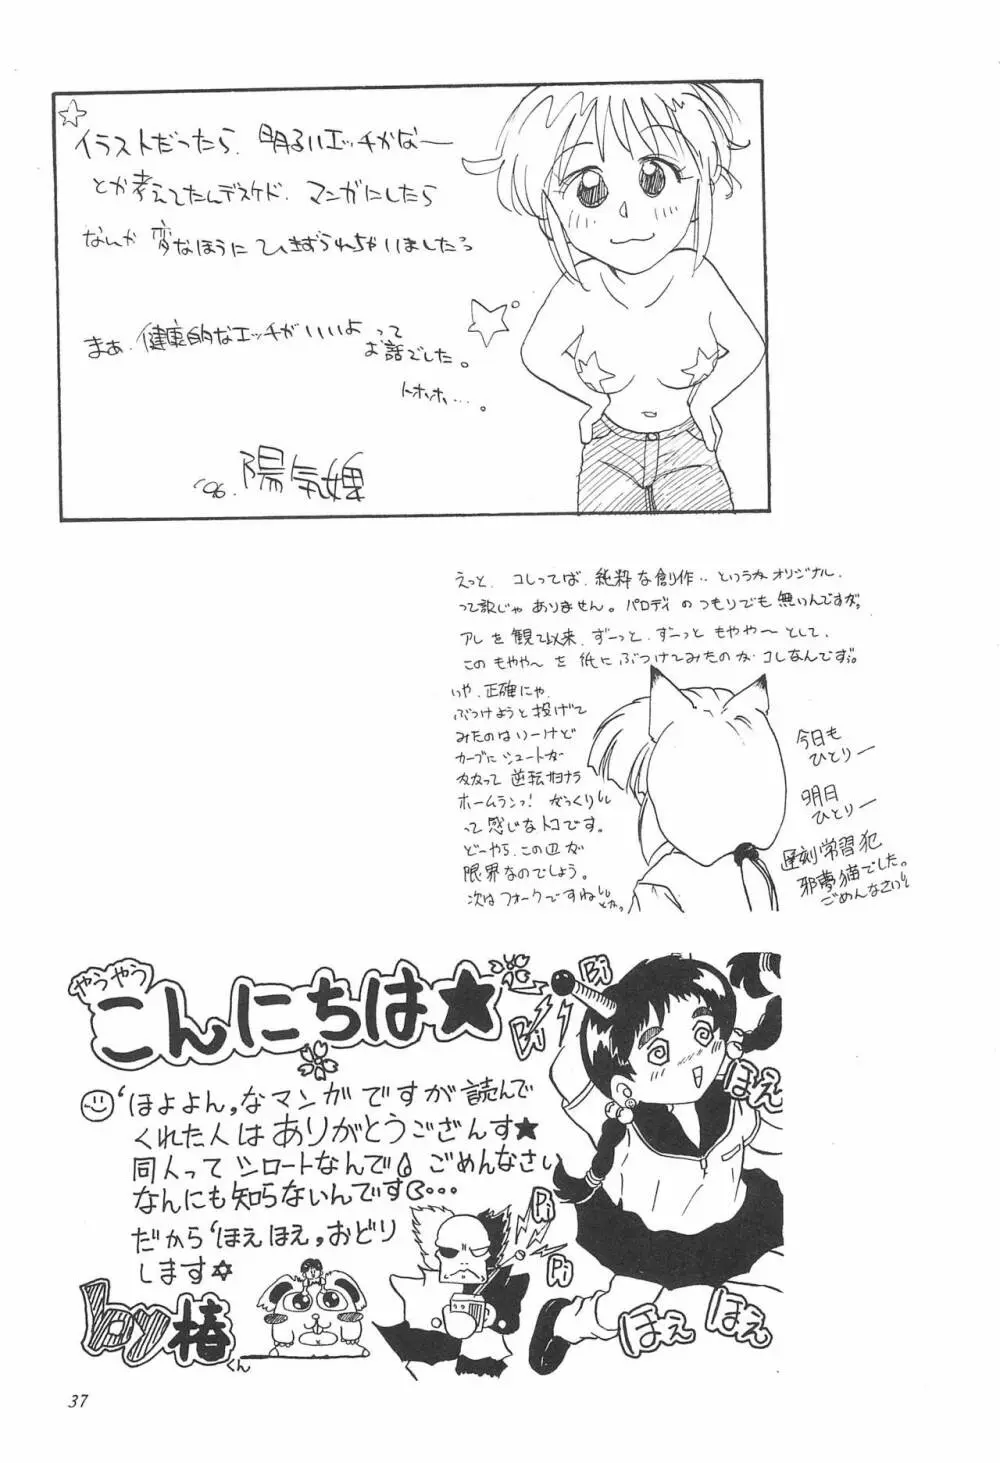 イラストだったら、明るいエッチかな〜
とか考えてたんデスケド、マンガにしたら
なんか 変なほうに ひきずられちゃいましたっ
まあ、健康的なエッチがいいよって
お話でした。
トホホ…。
'96. 陽気婢
えっと、コレってば、純粋な創作‥というかオリジナル、
って訳じゃ ありません。パロディ のつもりでも 無いんですが。
アレ を 観て以来、ずーっと、ずーっと もやや〜 として、
この もやや〜 を 紙に ぶつけてみたの が コレなんです。
いや、正確にゃ、
ぶつけようと 投げて
みたのはいーけど
カーブに シュートが
って 逆転サヨナラ
ホームランっ! がっくりし
って 感じなトコです。
どーやら、この辺が
限界なのでしょう。
次は フォークですね
今日も
ひとりー
明日
ひとりー
遅刻常習犯
邪夢猫でした。
ごめんなさい
やうやう
こんにちは★
'ほよよん,なマンガですが読んで
くれた人は ありがとうござんす★
同人って シロートなんで ごめんなさい
なんにも 知らないんです…
だから 'ほえほえ, おどり
します☆
by 椿くん
Bi
Bi
Pi
Pi
Pi
ほえ
ほえ
ほえ
37